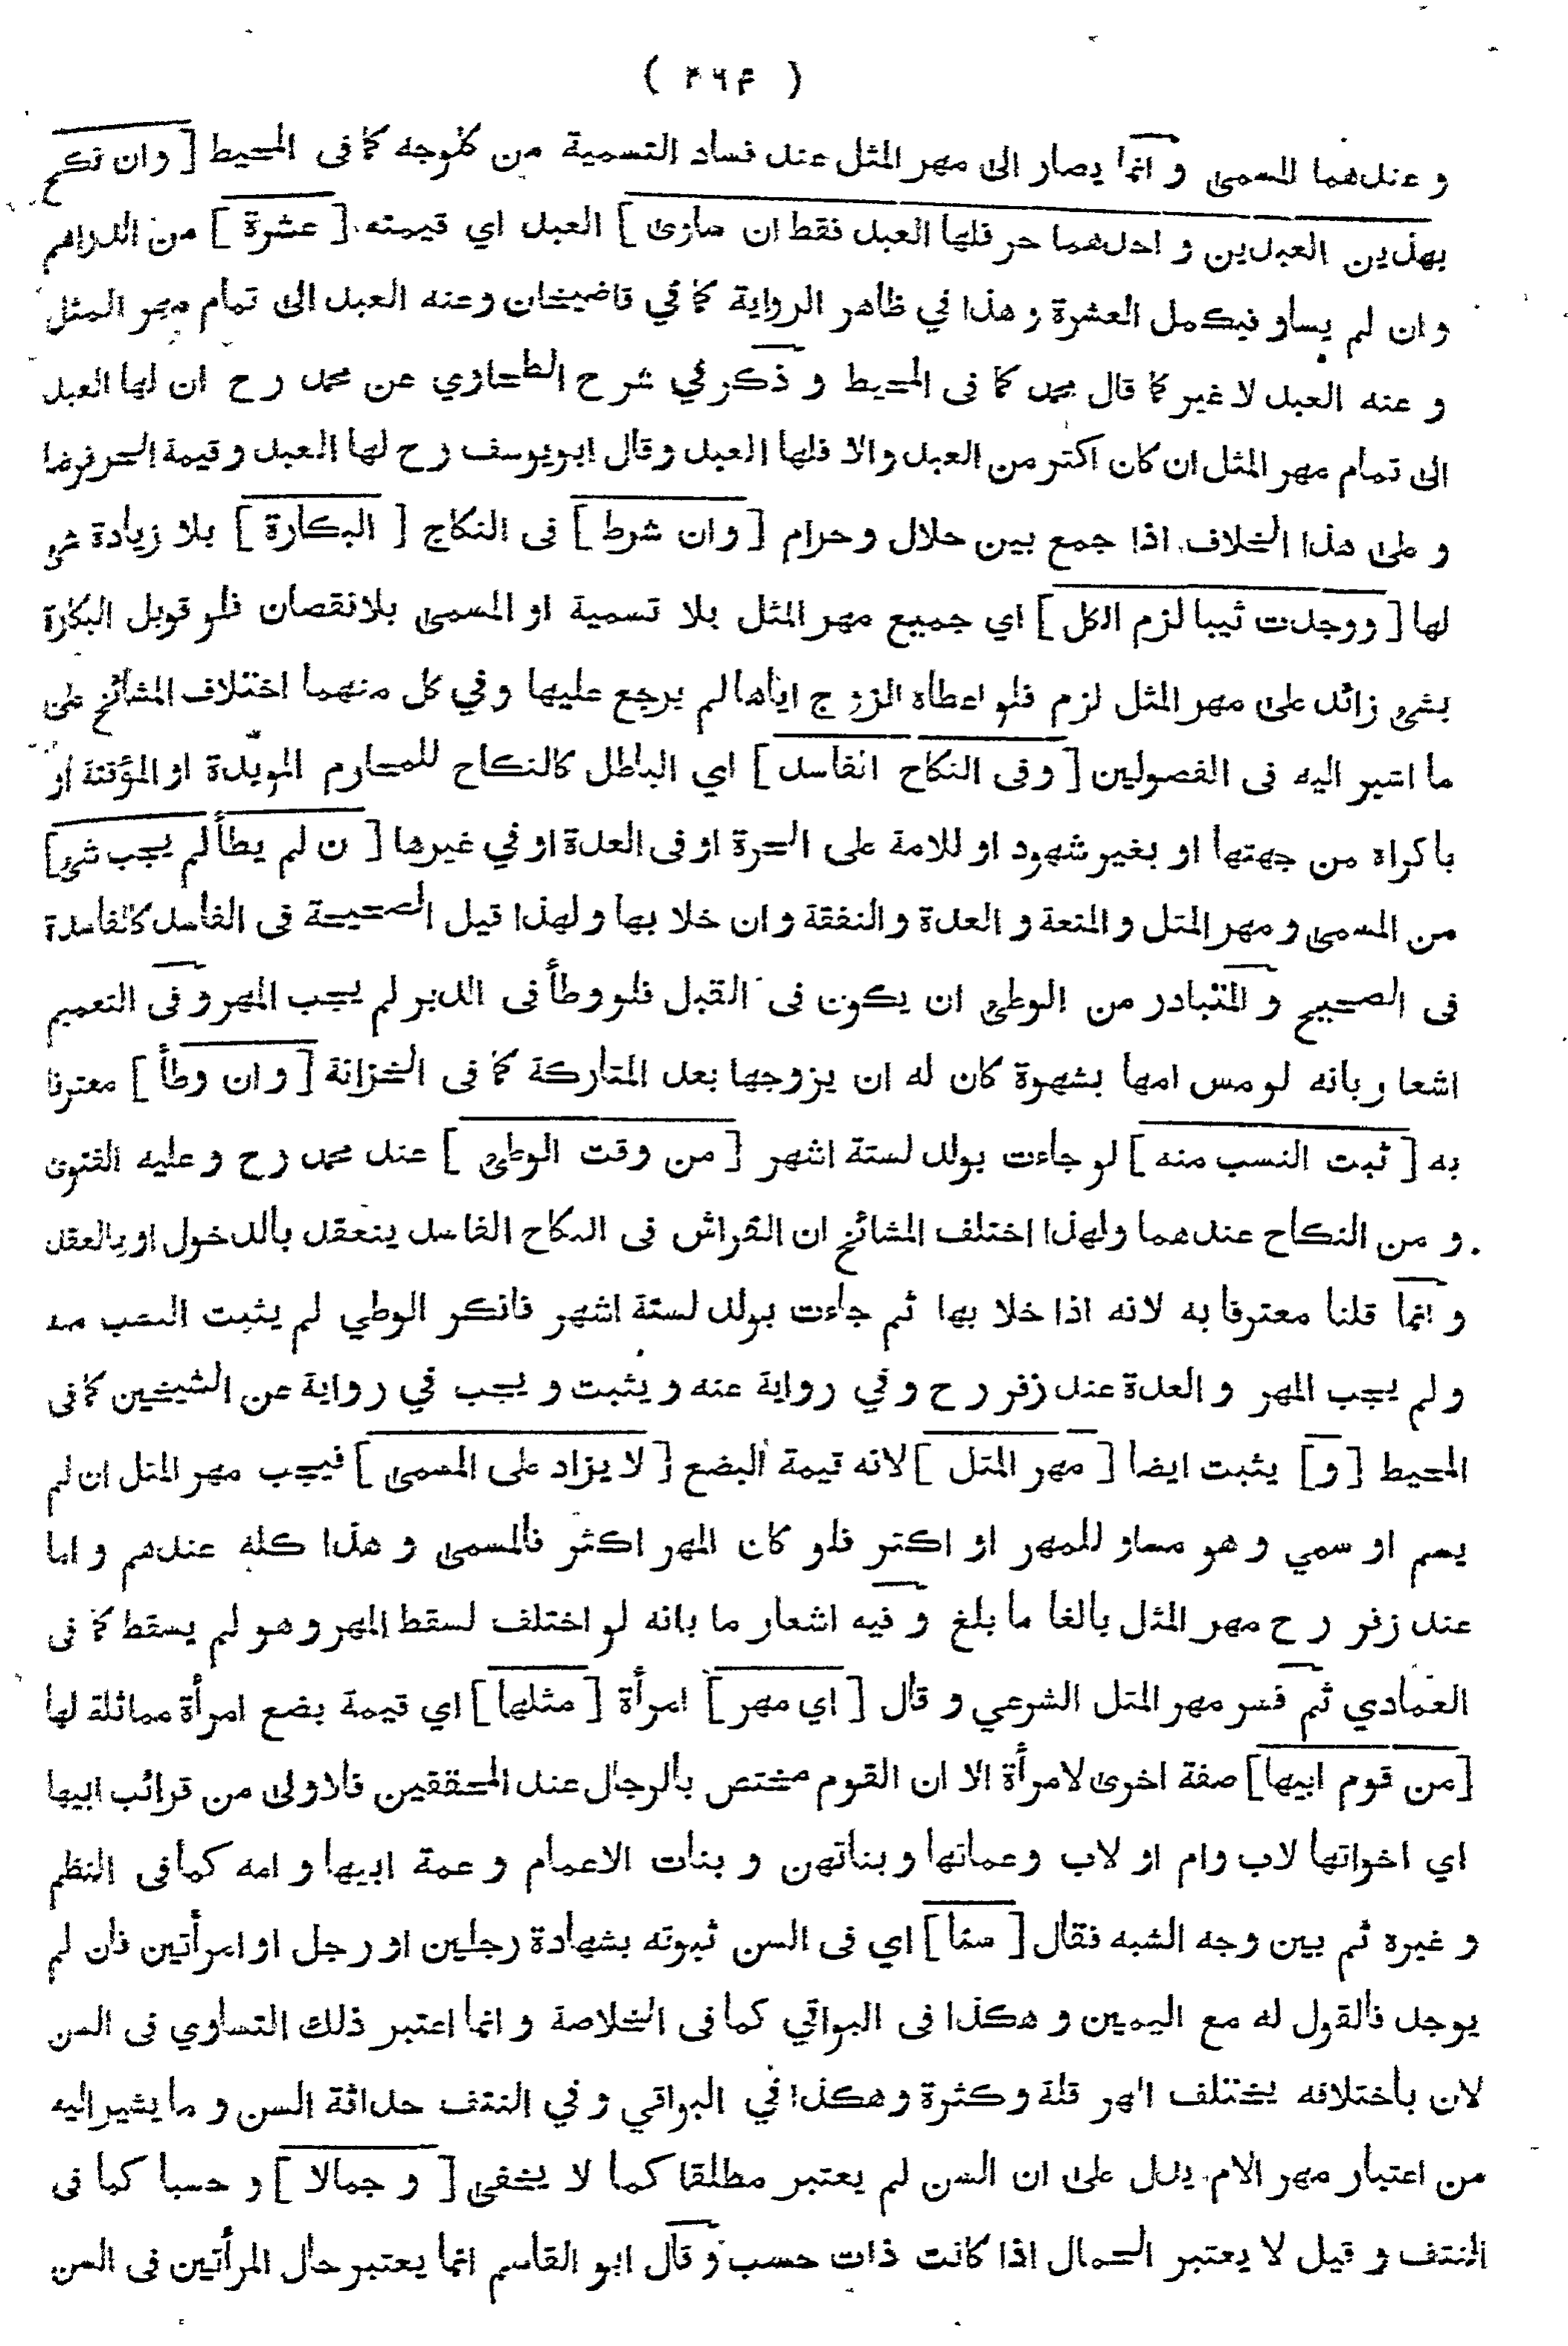 ( ٣٦٤ )
و عندهما المسمى و انما يصار الى مهر المثل عند فساد التسمية من كلوجه كما فى المحيط [ و ان نكح
بهذين العبدين و احدهما حر فلها العبد فقط ان ساوى ] العبد اي قيمته [ عشرة ] من الدراهم
و ان لم يساو فيكمل العشرة و هذا في ظاهر الرواية كما في قاضيخان وعنه العبد الى تمام مهر المثل
و عنه العبد لا غير كما قال محمد كما فى المحيط و ذكر في شرح الطحاوي عن محمد رح ان لها العبد
الى تمام مهر المثل ان كان اكثر من العبد والا فلها العبد وقال ابويوسف رح لها العبد و قيمة الحر فرضا
و على هذا الخلاف اذا جمع بين حلال و حرام [ و ان شرط ] فى النكاح [ البكارة ] بلا زيادة شي
لها [ ووجدت ثيبا لزم الكل ] اي جميع مهر المثل بلا تسمية او المسمى بلانقصان فلو قوبل البكارة
بشي زائد على مهر المثل لزم فلو اعطاه الزوج اياها لم يرجع عليها وفي كل منهما اختلاف المشائخ على
ما اشير اليه فى الفصولين [ وفى النكاح الفاسد ] اي الباطل كالنكاح للمحارم المؤبدة او المؤقتة او
باكراه من جهتها او بغير شهود او للامة على الحرة او فى العدة او في غيرها [ ن لم يطأ لم يجب شي ]
من المسمى و مهر المثل و المتعة و العدة و النفقة و ان خلا بها و لهذا قيل الصحيحة فى الفاسد كالفاسدة
فى الصحيح و المتبادر من الوطي ان يكون فى القبل فلو وطأ فى الدبر لم يجب المهر و فى التعميم
اشعار بانه لو مس امها بشهوة كان له ان يزوجها بعد المتاركة كما فى الخزانة [ و ان وطأ ] معترفا
به [ ثبت النسب منه ] لو جاءت بولد لستة اشهر [ من وقت الوطي ] عند محمد رح و عليه الفتوى
و من النكاح عندهما ولهذا اختلف المشائخ ان الفراش فى النكاح الفاسد ينعقد بالدخول او بالعقد
و انما قلنا معترفا به لانه اذا خلا بها ثم جاءت بولد لستة اشهر فانكر الوطي لم يثبت النسب منه
و لم يجب المهر و العدة عند زفر رح و في رواية عنه و يثبت و يجب في رواية عن الشيخين كما فى
المحيط [ و ] يثبت ايضا [ مهر المثل ] لانه قيمة البضع [ لا يزاد على المسمى ] فيجب مهر المثل ان لم
يسم او سمي و هو مساو للمهر او اكثر فلو كان المهر اكثر فالمسمى و هذا كله عندهم و اما
عند زفر رح مهر المثل بالغا ما بلغ و فيه اشعار ما بانه لو اختلف لسقط المهر و هو لم يسقط كما فى
العمادي ثم فسر مهر المثل الشرعي و قال [ اي مهر ] امرأة [ مثلها ] اي قيمة بضع امرأة مماثلة لها
[ من قوم ابيها ] صفة اخرى لامرأة الا ان القوم مختص بالرجال عند المحققين فالاولى من قرائب ابيها
اي اخواتها لاب وام او لاب وعماتها و بناتهن و بنات الاعمام و عمة ابيها و امه كما فى النظم
و غيره ثم بين وجه الشبه فقال [ سنا ] اي فى السن ثبوته بشهادة رجلين او رجل او امرأتين فان لم
يوجد فالقول له مع اليمين و هكذا فى البواقي كما فى الخلاصة و انما اعتبر ذلك التساوي فى السن
لان باختلافه يختلف المهر قلة و كثرة و هكذا في البواقي و في النتف حداثة السن و ما يشير اليه
من اعتبار مهر الام يدل على ان السن لم يعتبر مطلقا كما لا يخفى [ و جمالا ] و حسبا كما فى
النتف و قيل لا يعتبر الجمال اذا كانت ذات حسب و قال ابو القاسم انما يعتبر حال المرأتين فى السن